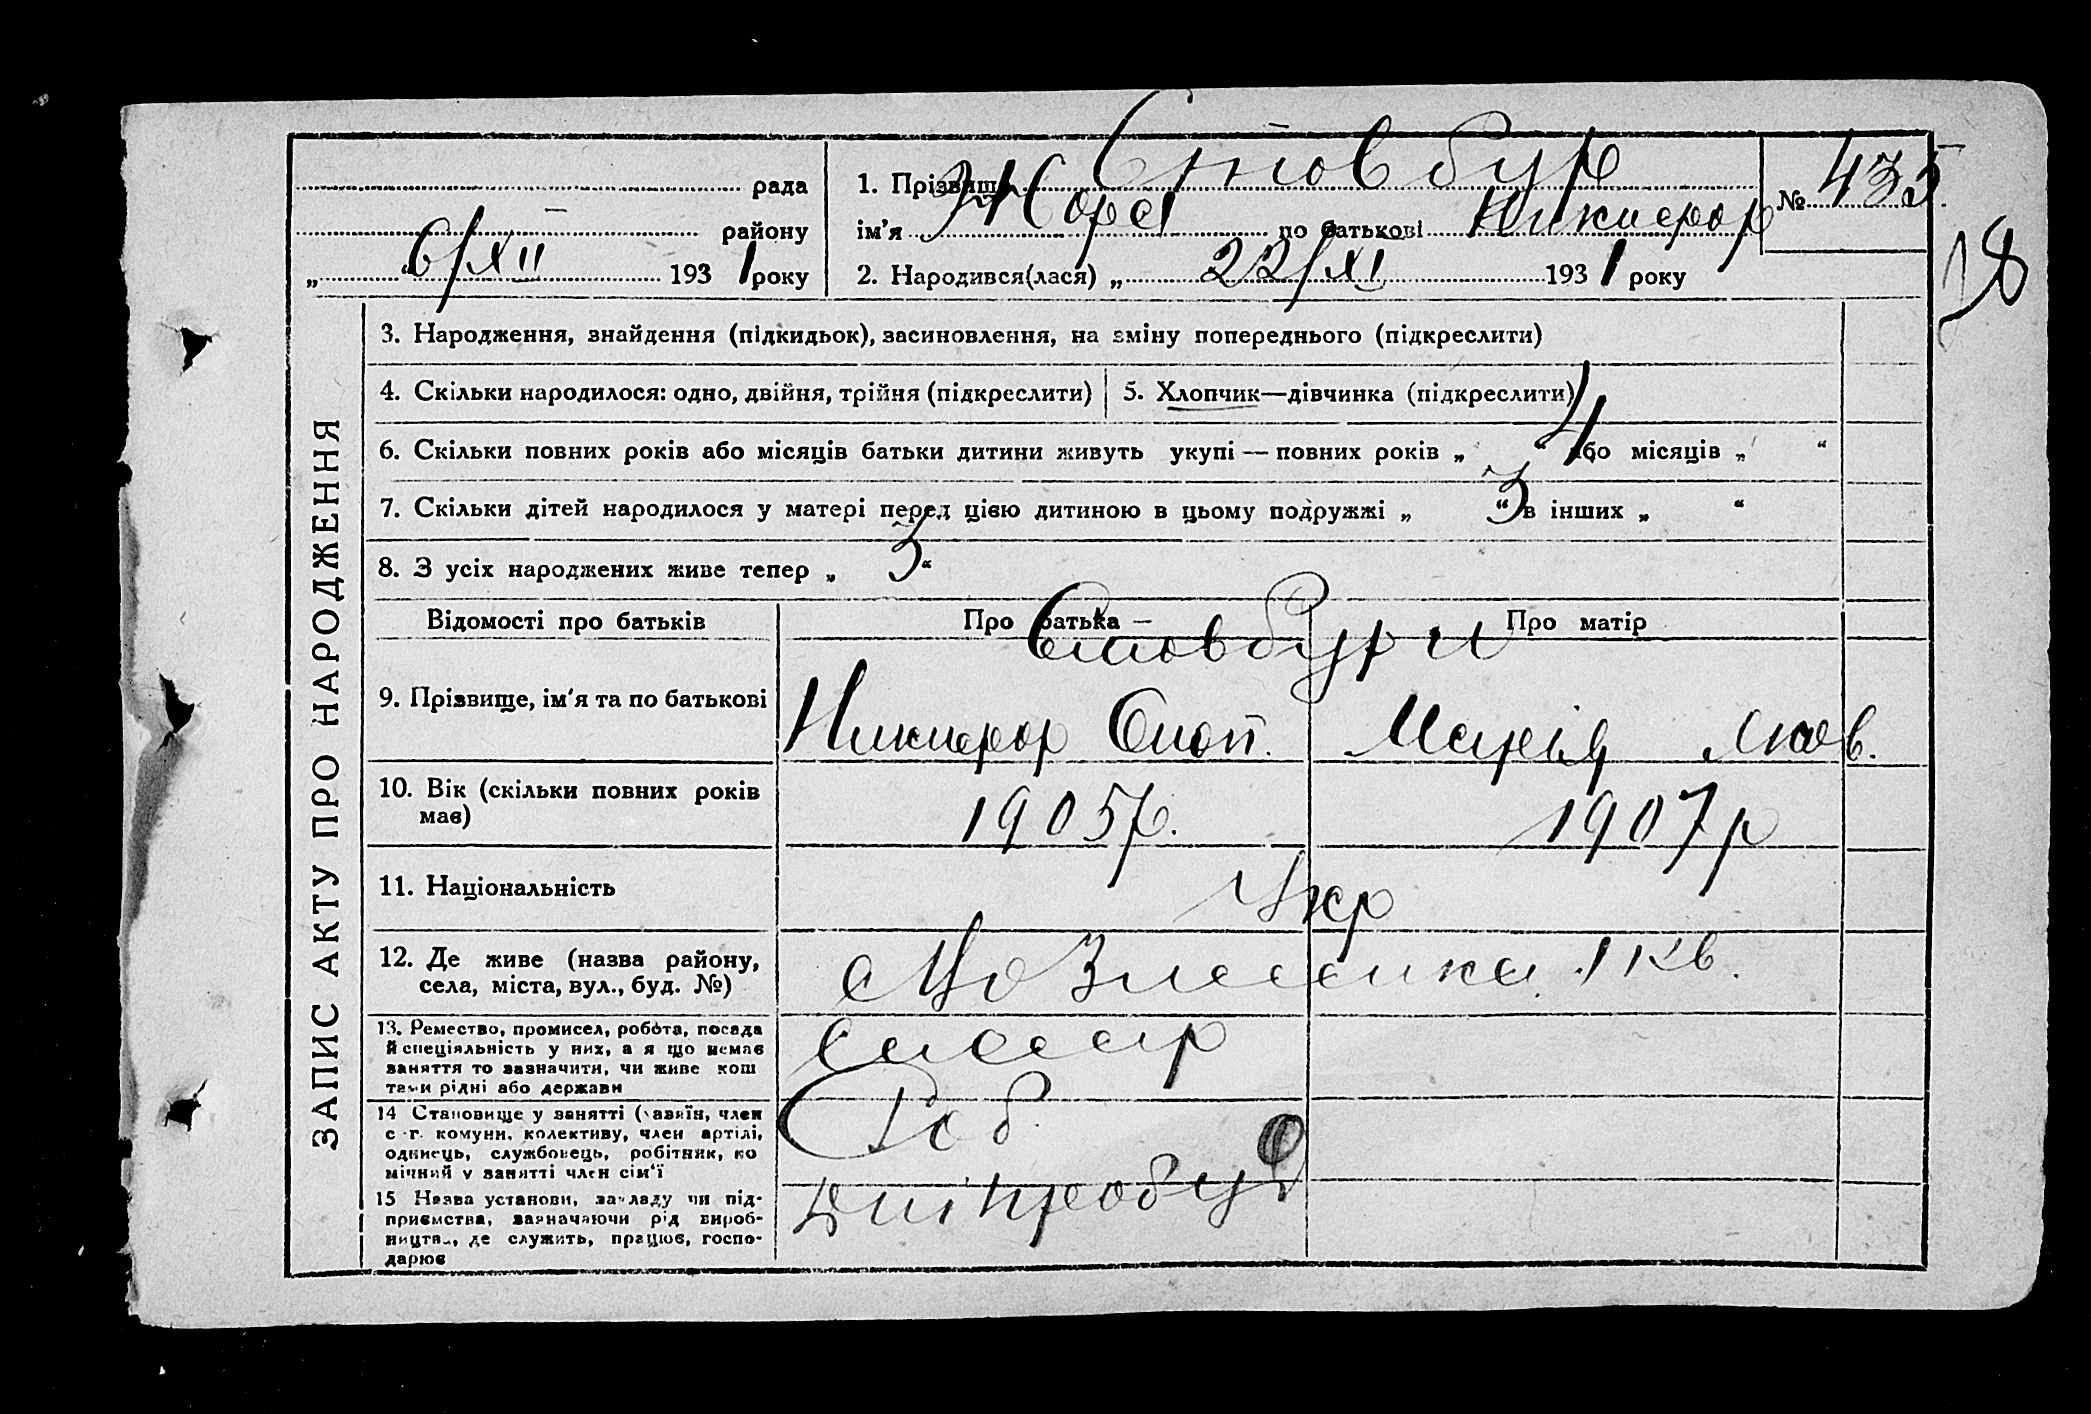 Стовбур
рада 1. Прізвище № 435
Жорж Никифор
району ім'я по батькові
„ “ 6/XII 1931 року 2. Народився(лася) „ 22/XI 1931 року
18
ЗАПИС АКТУ ПРО НАРОДЖЕННЯ
3. Народження, знайдення (підкидьок), засиновлення, на зміну попереднього (підкреслити)
4. Скільки народилося: одно, двійня, трійня (підкреслити) 5. Хлопчик—дівчинка (підкреслити)
6. Скільки повних років або місяців батьки дитини живуть укупі — повних років „ 4 “ або місяців „ “
7. Скільки дітей народилося у матері перед цією дитиною в цьому подружжі „ 3 “ в інших „ “
8. З усіх народжених живе тепер „ 3 “
Відомості про батьків Про батька — Про матір
Стовбури
9. Прізвище, ім'я та по батькові Никифор Марія
10. Вік (скільки повних років має) 1905 р. 1907 р
11. Національність Укр
12. Де живе (назва району, села, міста, вул., буд. №) 1 кв.
13. Ремество, промисел, робота, посада
й спеціяльність у них, а я що немає
заняття то зазначити, чи живе кош
тами рідні або держави
слюсар
14 Становище у занятті (хазяїн, член
с-г. комуни, колективу, член артілі,
одинець, службовець, робітник, по
мічний у занятті член сім'ї
Роб.
15 Назва установи, закладу чи під-
приємства, зазначаючи рід вироб-
ництва, де служить, працює, госпо-
дарює
Дніпробуд